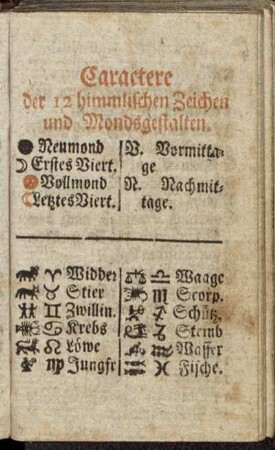 Caractere
der 12 himmlischen Zeichen
und Mondsgestalten.
Neumond
Erstes Viert.
Vollmond
Letztes Viert.
V. Vormitta-
ge
N. Nachmit-
tage.
♈ Widder
♉ Stier
♊ Zwillin.
♋ Krebs
♌ Löwe
♍ Jungfr
♎ Waage
♏ Scorp.
♐ Schütz.
♑ Steinb
♒ Wasser
♓ Fische.